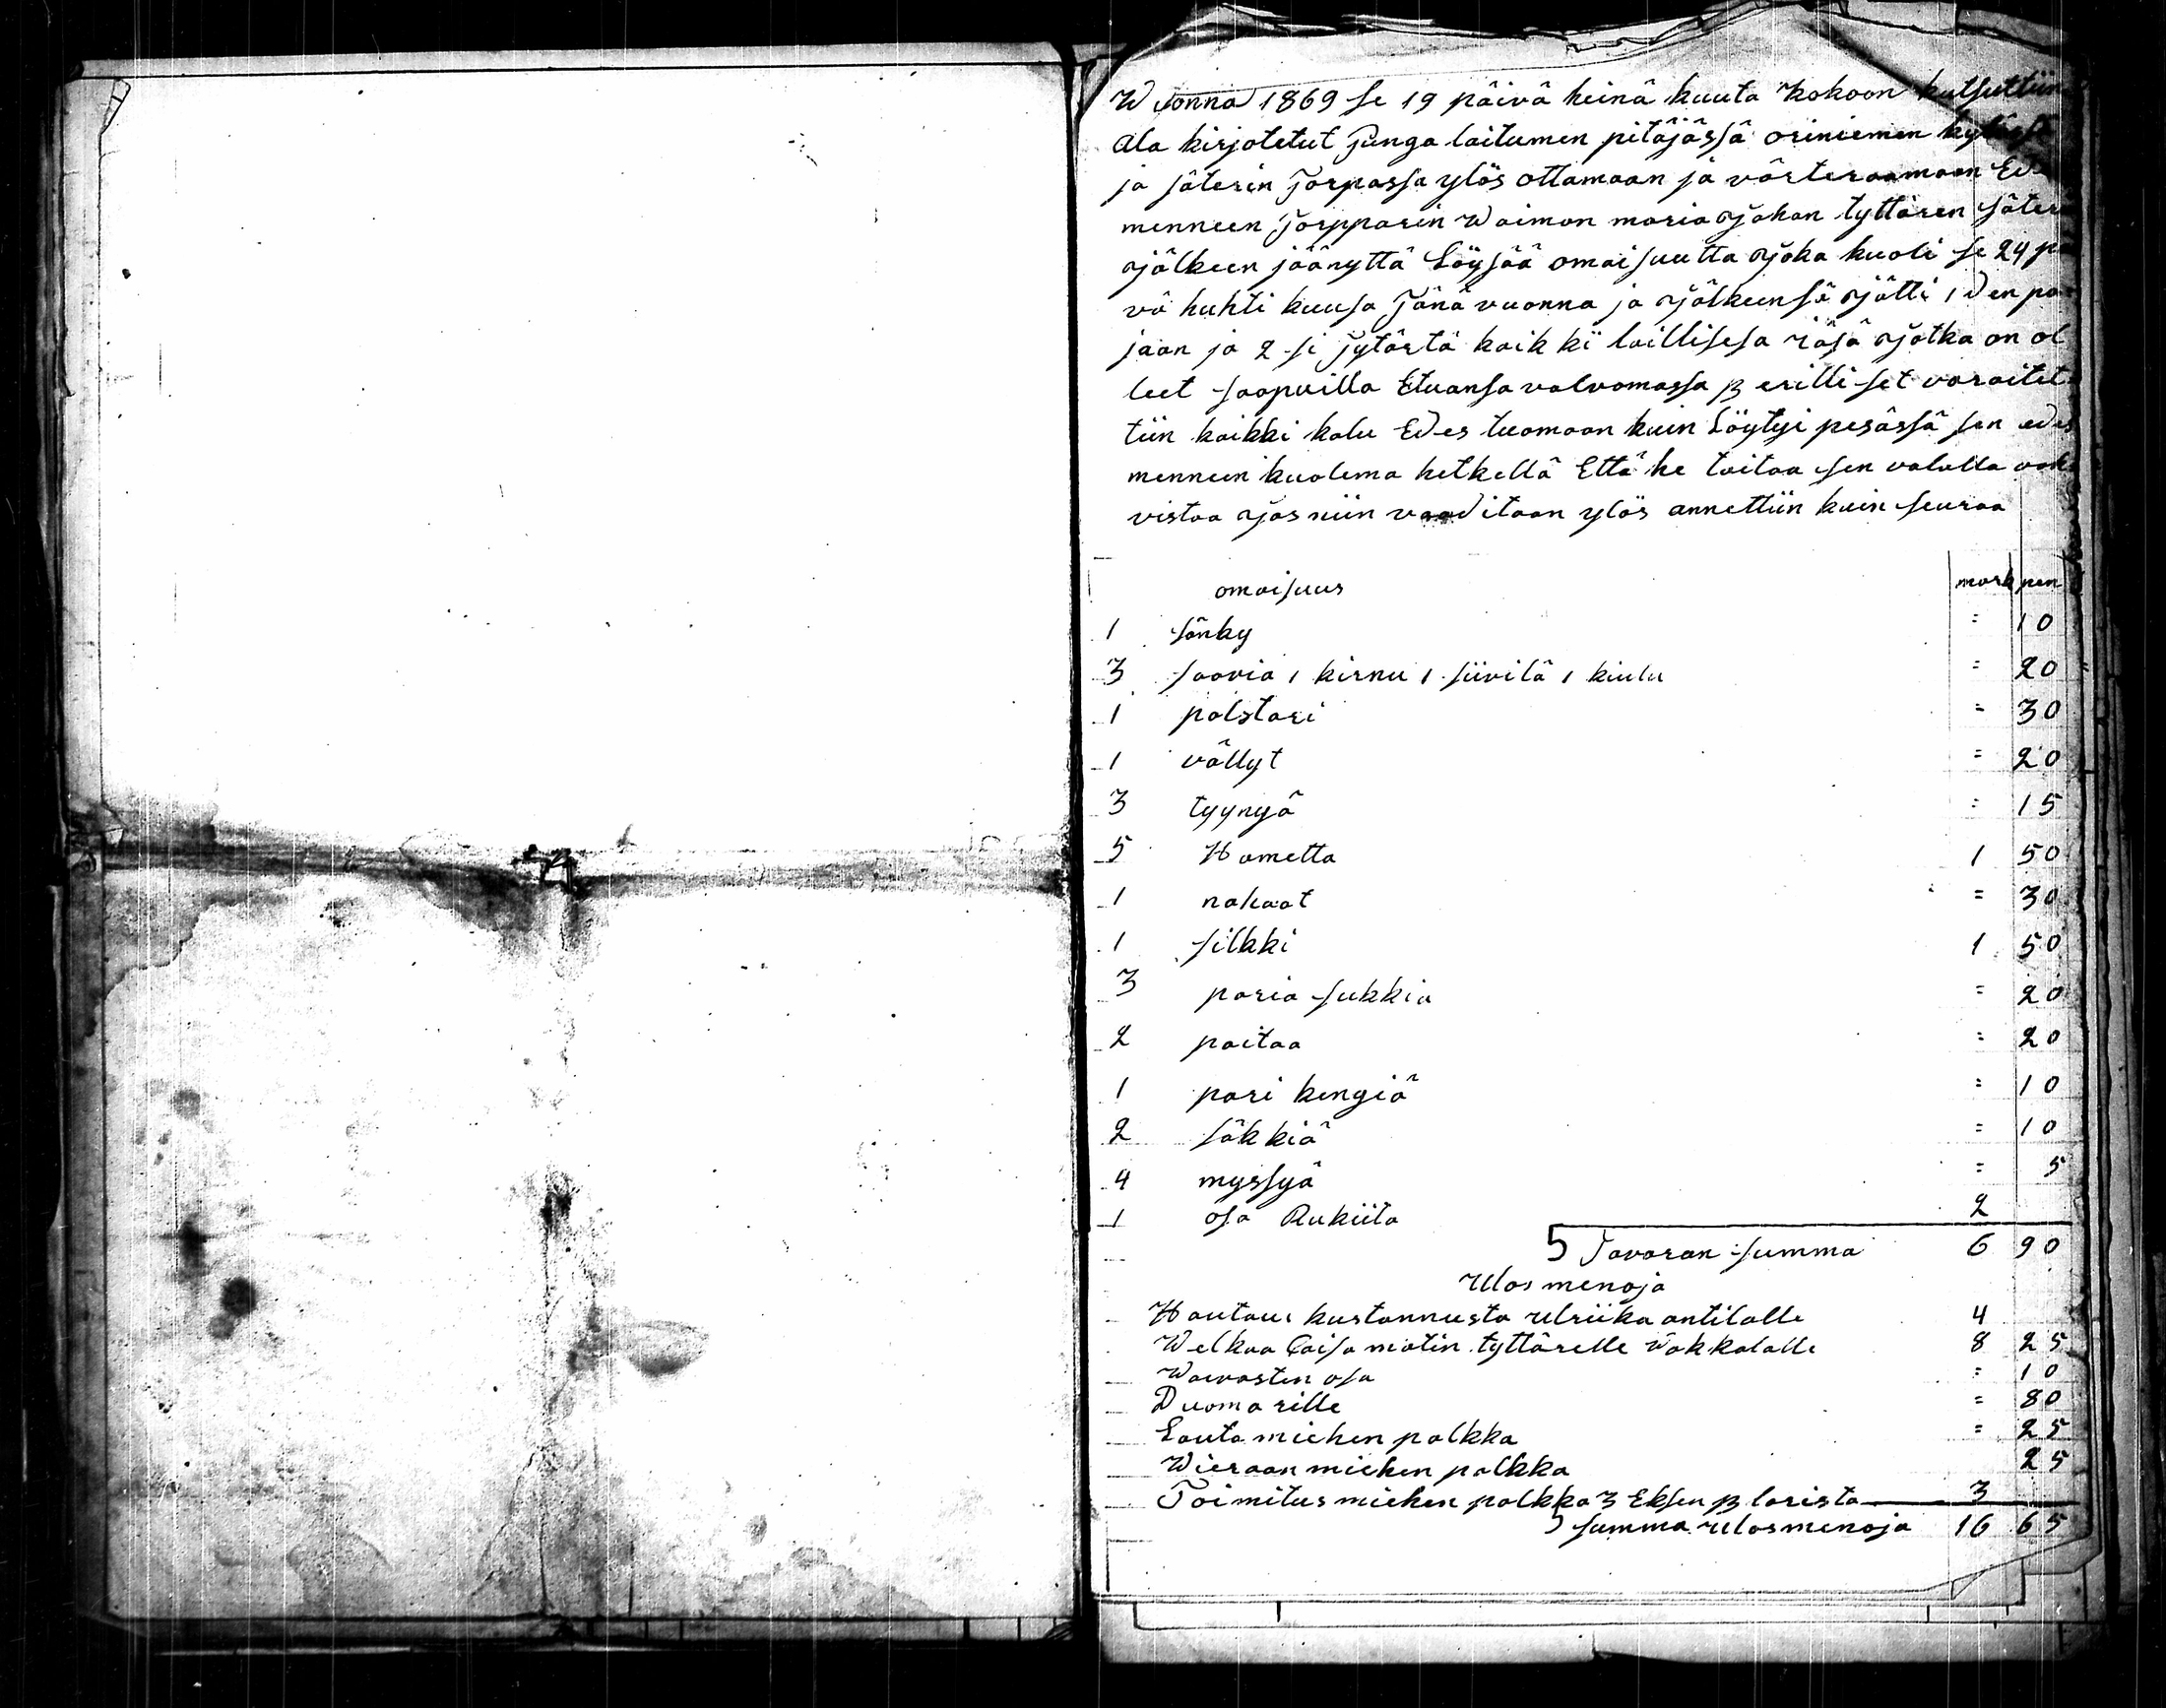 Wuonna 1869 se 19 päivä heinä kuuta kokoon kutsuttiin
ala kirjotetut Junga laitumen pitäjässä oriniemen kylässä
ja säterin Torpassa ylös ottamaan ja värteraamaan Edes
menneen Torpparin Waimon maria Johan tyttären säter
Jälkeen jäänyttä Löysää omaisuutta Joka kuoli se 24 päi
vä huhti kuusa Tänä vuonna ja Jälkeensä Jätti 1 den po
jaan ja 2 si Tytärtä kaikki laillisesa iäsä Jotka on ol
leet saapuilla Etuansa valvomassa ja erilliset varoitet
tiin kaikki kalu Edes tuomaan kuin Löytyi pesässä sen edes
menneen kuolema hetkellä Että he taitaa sen valalla vah
vistaa Jos niin vaaditaan ylös annettiin kuin seuraa
omaisuus mark pen
1 sänky = 10
3 saavia 1 kirnu 1 siivilä 1 kiulu = 20
1 polstari = 30
1 vällyt = 20
3 tyynyä = 15
5 Hametta 1 50
1 nahaat = 30
1 silkki 1 50
3 paria sukkia = 20
2 paitaa = 20
1 pari kengiä = 10
2 säkkiä = 10
4 myssyä = 5
1 osa Rukiita 2
Tavaran summa 6 90
Ulos menoja
Hautaus kustannusta ulriika antilalle 4
Welkaa Caisa matin tyttärelle wäkkälälle 8 25
Waivasten osa = 10
Duomarille = 80
Lauta miehen palkka = 25
Wieraan miehen palkka 25
Toimitus miehen palkka 3 Eksen p larista 3
summa Ulosmenoja 16 65